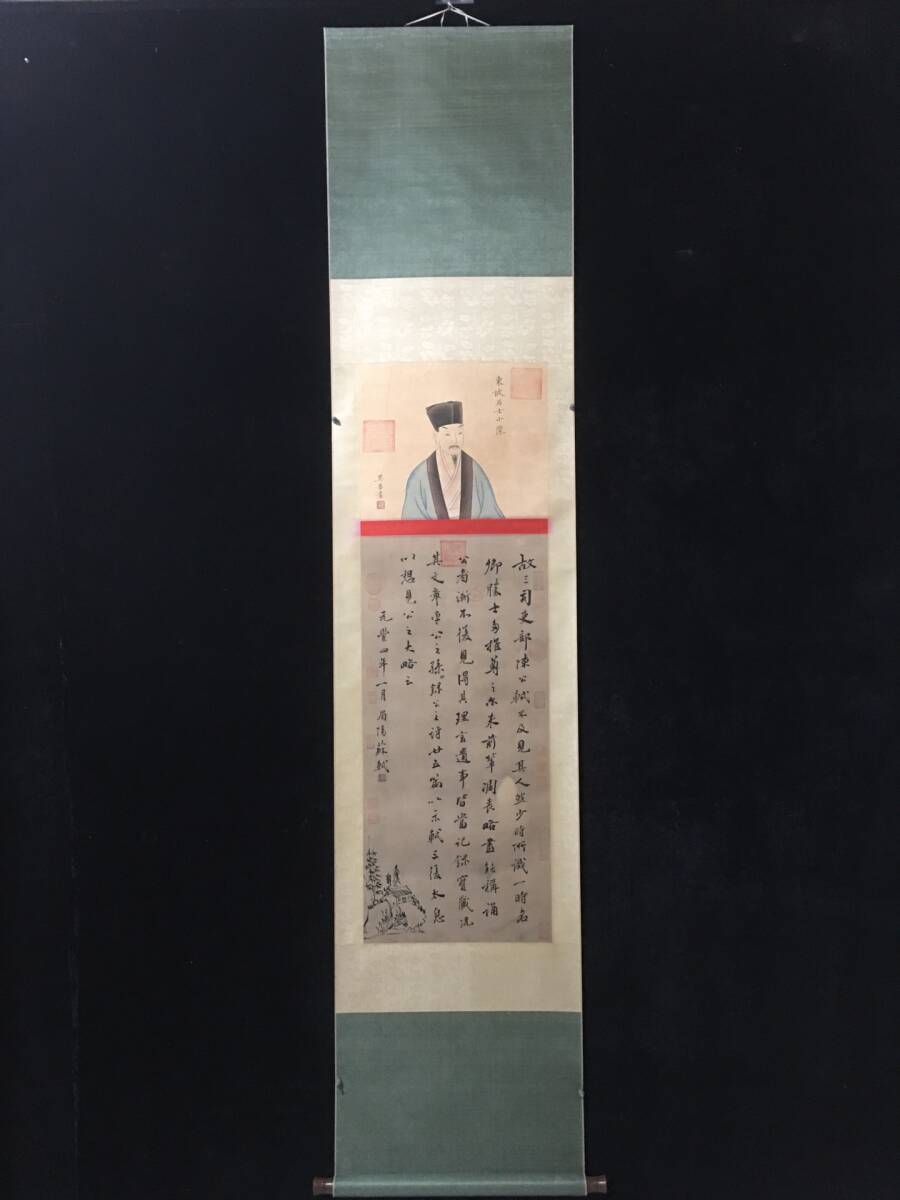 東坡居士小像
故三司吏部陳公軾不及見其人然少時所識一時名
卿勝士多推尊之尔来前輩凋喪略盡能稱誦
公者漸不復見得其理言遺事皆當記錄寶藏況
其文章乎公之孫錄公之詩廿五篇以示軾三復太息
以想見公之大略云
元豐四年一月眉陽蘇軾